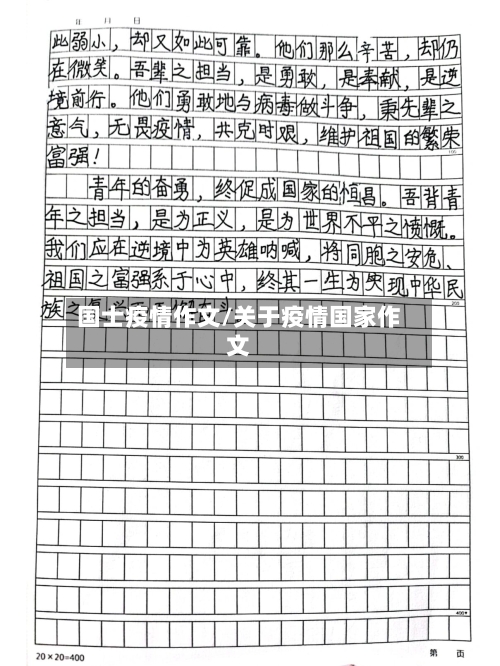 年 月 日
此弱小，却又如此可靠。他们那么辛苦，却仍
在微笑。吾辈之担当，是勇敢，是奉献，是逆
境前行。他们勇敢地与病毒做斗争，秉先辈之
意气，无畏疫情，共克时艰，维护祖国的繁荣
富强！
100
青年的奋勇，终促成国家的恒昌。吾背青
年之担当，是为正义，是为世界不平之愤慨。
我们应在逆境中为英雄呐喊，将同胞之安危、
祖国之富强系于心中，终其一生为实现中华民
200
族之复兴而
国士疫情作文/关于疫情国家作
文
300
400
20×20=400
第 页